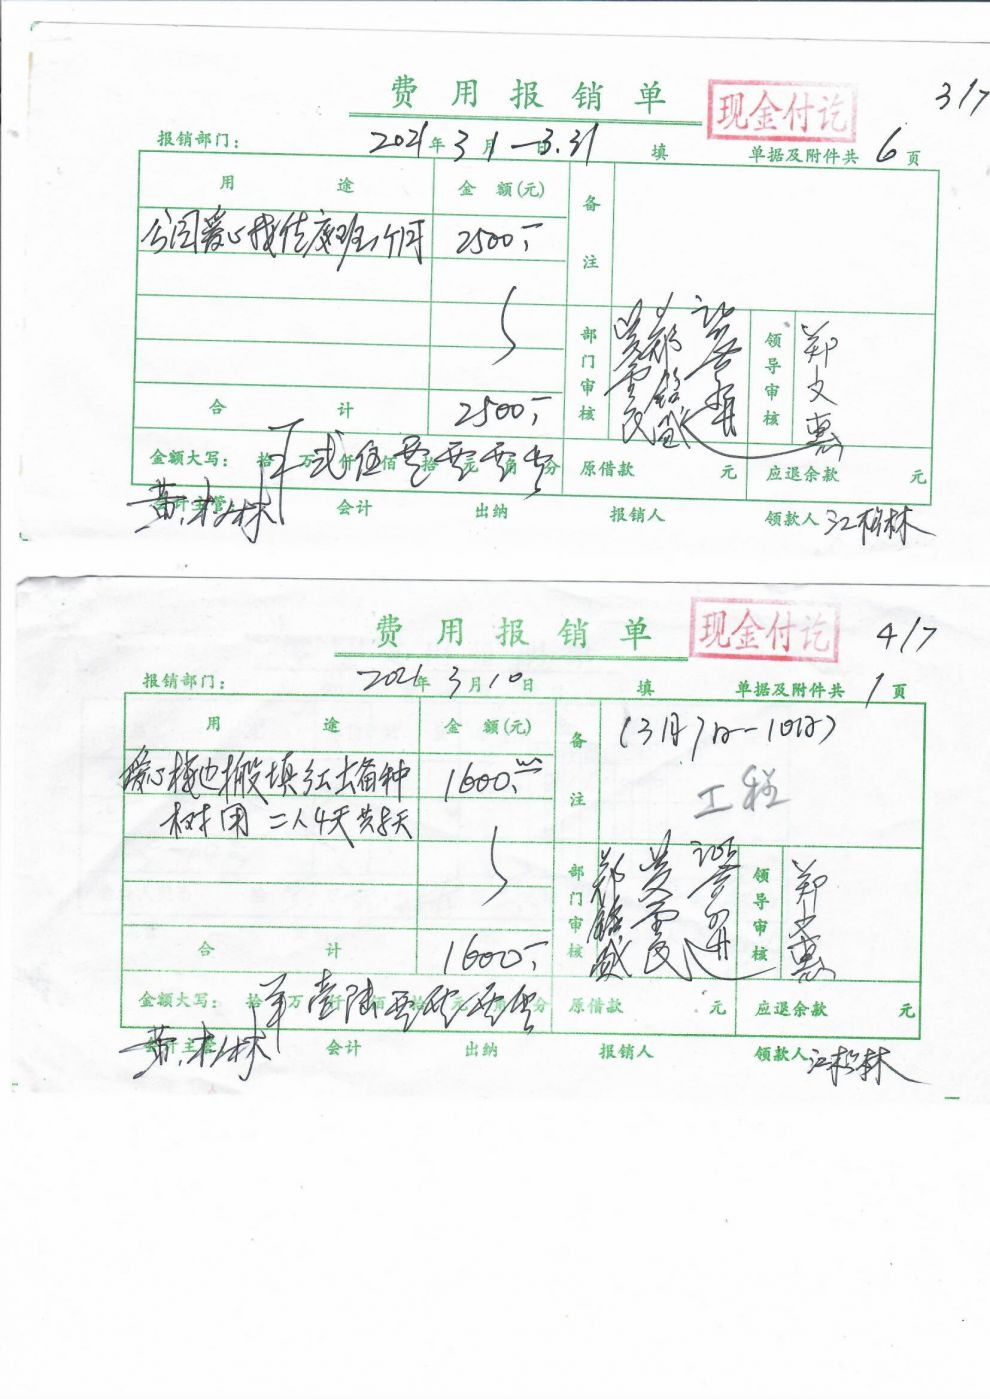 费用报销单
现金付讫
3/7
报销部门： 2021年3月1日—3.31 填 单据及附件共 6 页
用途 金额(元) 备注
公园爱心栈 值班1个月 2500.-
部门审核 领导审核 郑文惠
合计 2500.-
金额大写： 拾 万贰仟伍佰零拾零元零角零分 原借款 元 应退余款 元
会计主管： 会计 出纳 报销人 领款人 江松林
费用报销单
现金付讫
4/7
报销部门： 2021年3月10日 填 单据及附件共 1 页
用途 金额(元) 备注 (3月7日—10日)
爱心栈边搬填红土备种 1600.-
工程
树用 二人4天共8天
部门审核 领导审核 郑文惠
合计 1600.-
金额大写： 拾 万壹仟陆佰零拾零元零角零分 原借款 元 应退余款 元
会计主管： 会计 出纳 报销人 领款人 江松林